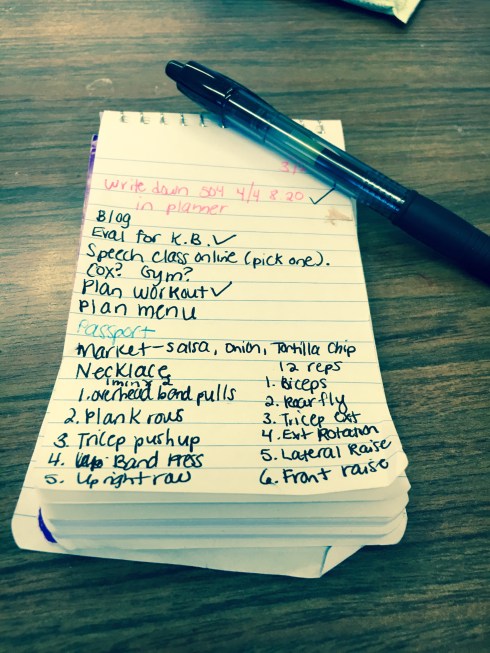 write down 504 4/4 8:20 ✓
in planner
Blog
Eval for K.B. ✓
Speech class online (pick one).
Cox? Gym?
Plan workout ✓
Plan menu
Passport
Market - salsa, onion, Tortilla Chip
Necklace
1 min x 2
1. overhead band pulls
2. Plank rows
3. Tricep pushup
4. Band Press
5. Upright row
12 reps
1. Biceps
2. Rear fly
3. Tricep ext
4. Ext Rotation
5. Lateral Raise
6. Front raise